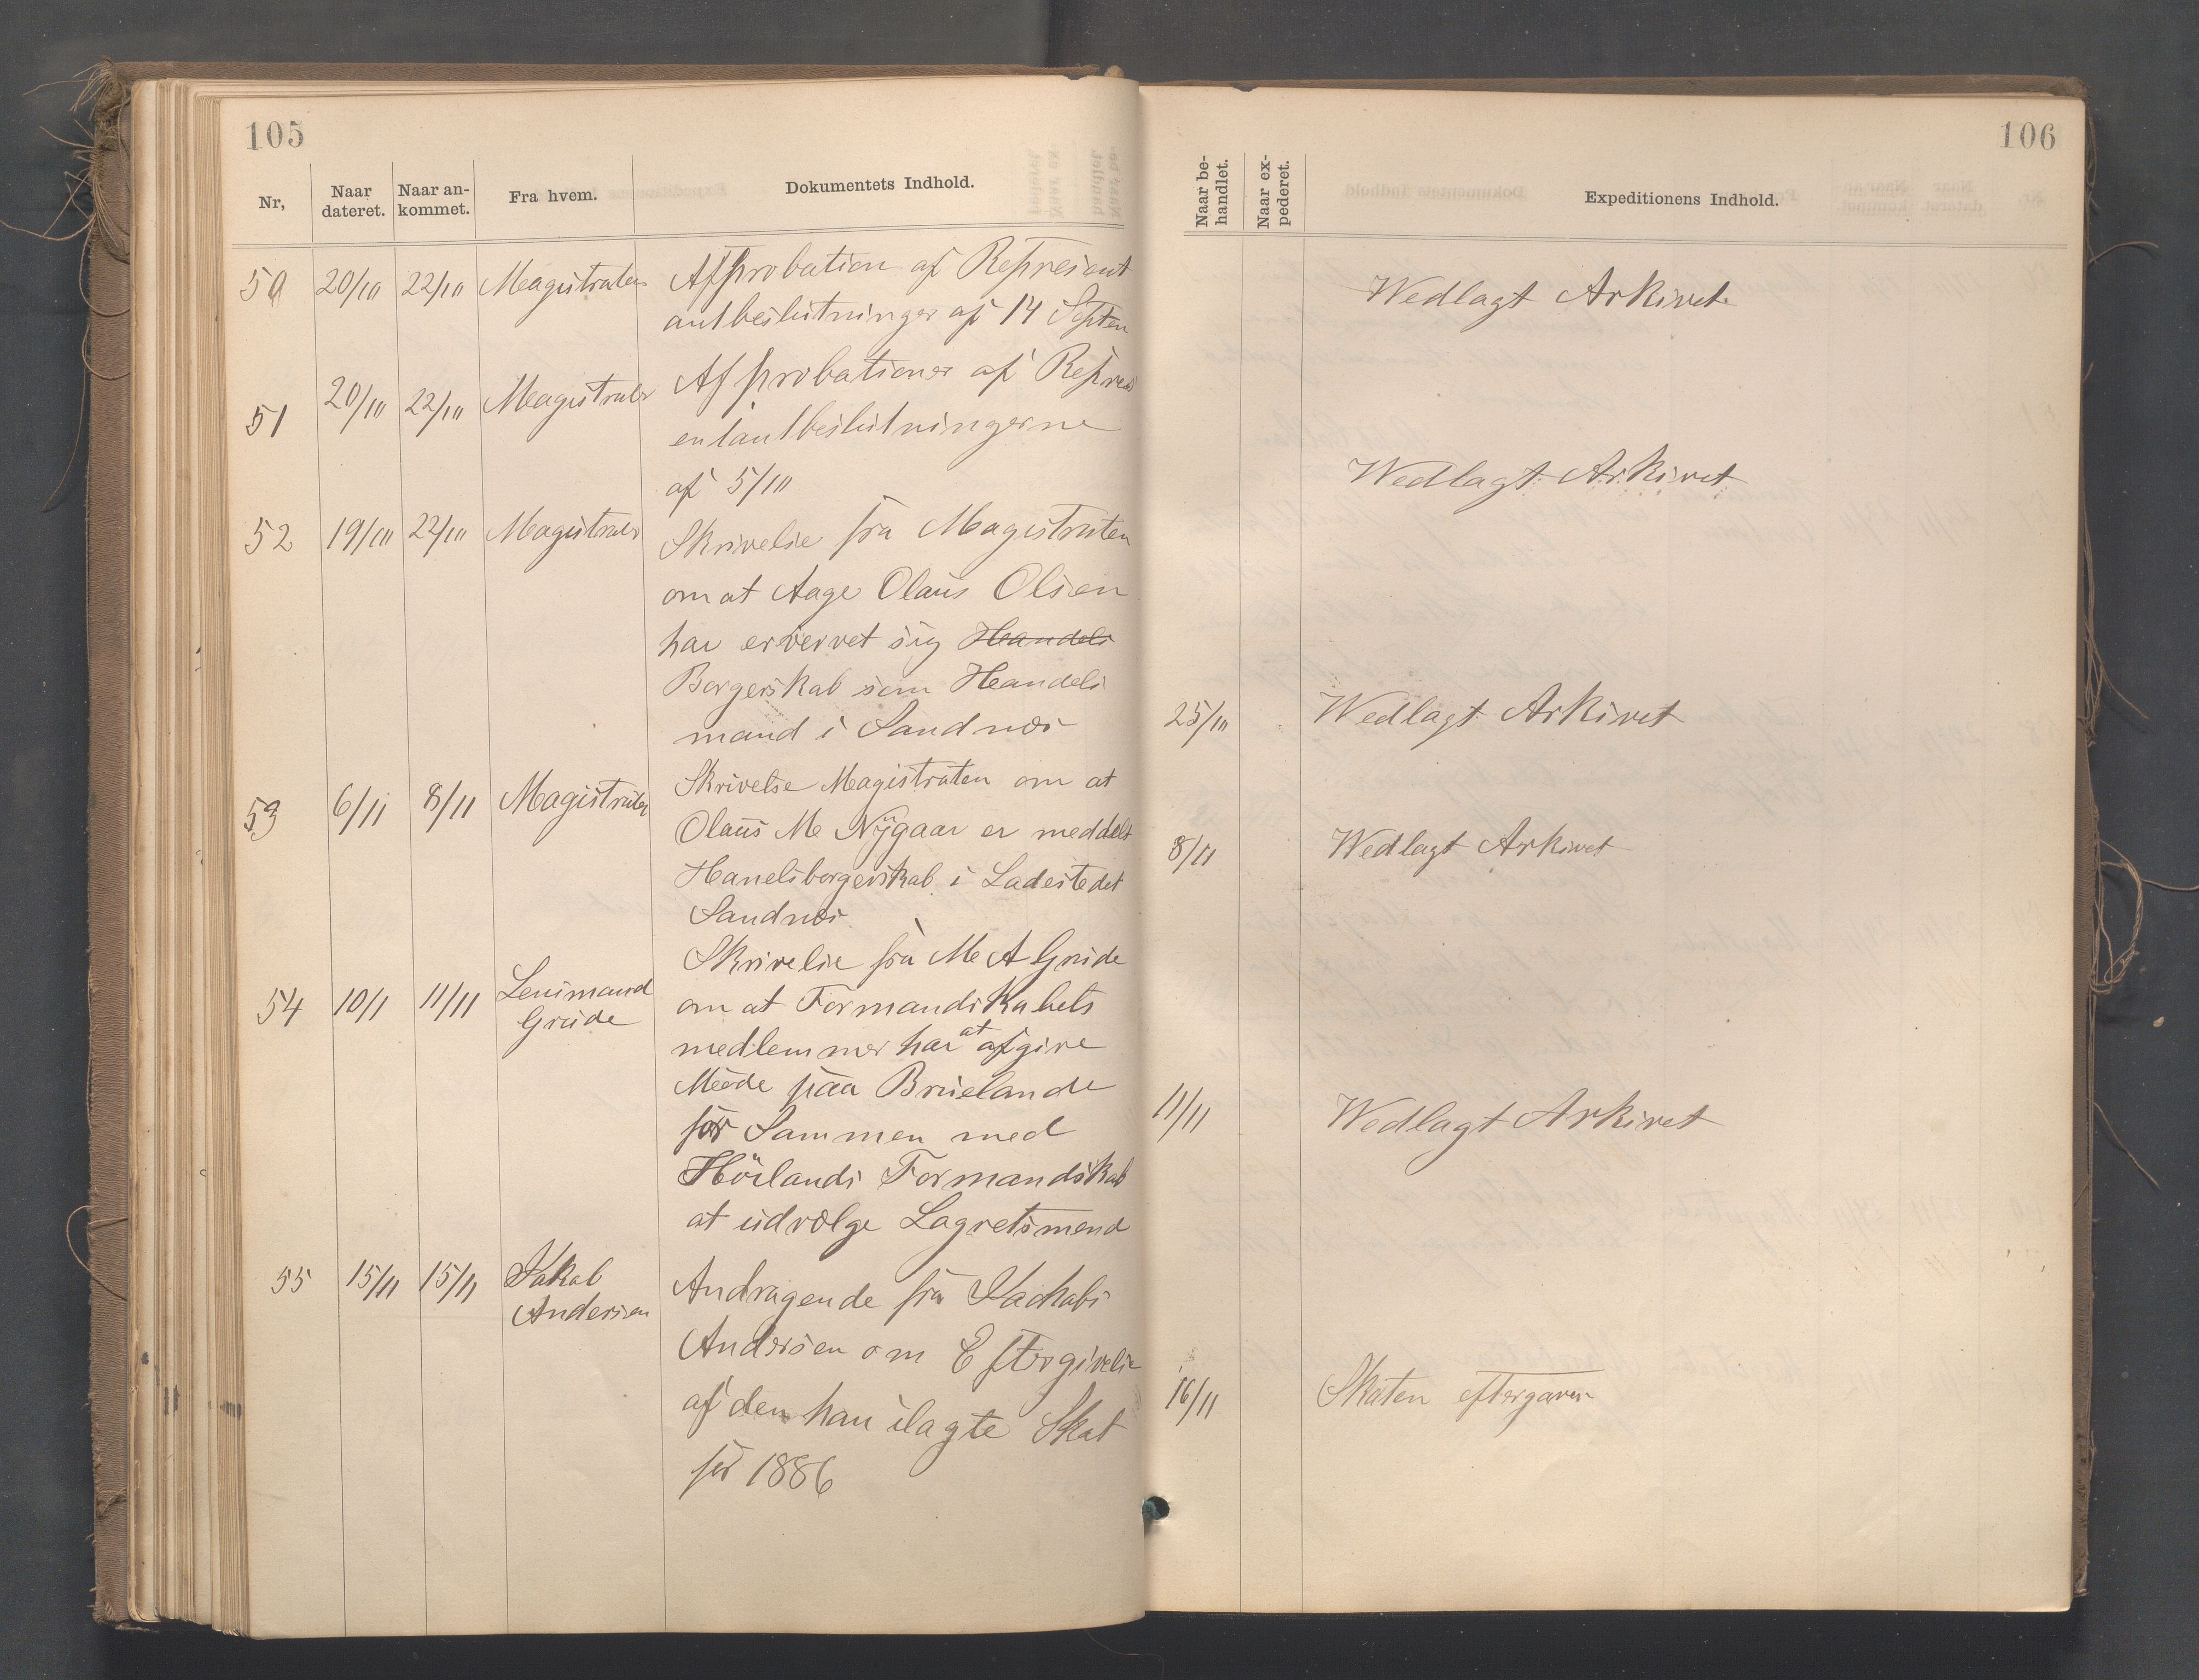 105
Nr,
Naar dateret.
Naar an- kommet.
Fra hvem.
Dokumentets Indhold.
50 20/10 22/10 Magistraten Approbation af Represent
antbeslutninger af 14 Septen
51 20/10 22/10 Magistraten Approbationer af Repres
entantbeslutningerne
af 5/10
52 19/10 22/10 Magistraten Skrivelse fra Magistraten
om at Aage Olaus Olsen
har ervervet sig Handels
Borgerskab som Handels
mand i Sandnæs
53 6/11 8/11 Magistraten Skrivelse Magistraten om at
Olaus M Nygaar er meddelt
Hanelsborgerskab i Ladestedet
Sandnæs
Skrivelse fra M A Grude
54 10/1 11/11 Lensmand om at Formandskabets
Grude medlemmer har at afgive
Møde paa Bruelande
for Sammen med
Hörlands Formandskab
at udvælge Lagretsmend
55 15/11 15/11 Jakob
Andersen
Andragende fra Jachabs
Andersen om Eftergivelse
af den han ilagte Skat
for 1886
106
Naar be- handlet.
Naar ex- pederet.
Expeditionens Indhold.
Wedlagt Arkivet
Wedlagt Arkivet
25/10 Wedlagt Arkivet
8/11 Wedlagt Arkivet
11/11 Wedlagt Arkivet
16/11 Skaten eftergaven